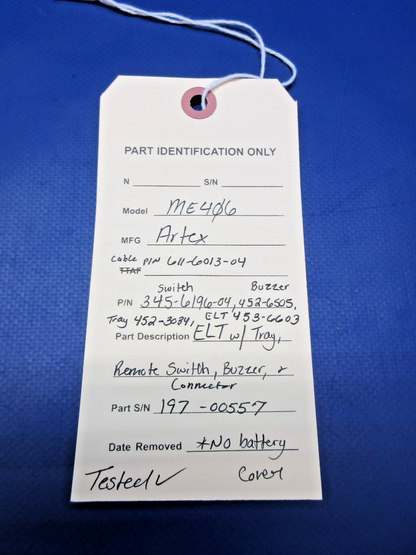 PART IDENTIFICATION ONLY
N S/N
Model ME406
MFG Artex
Cable P/N 611-6013-04
TTAF
Switch Buzzer
P/N 345-6196-04, 452-6505,
Tray 452-3084, ELT 453-6603
Part Description ELT w/ Tray,
Remote Switch, Buzzer, &
Connector
Part S/N 197-00557
Date Removed *No battery
Tested✓ Cover